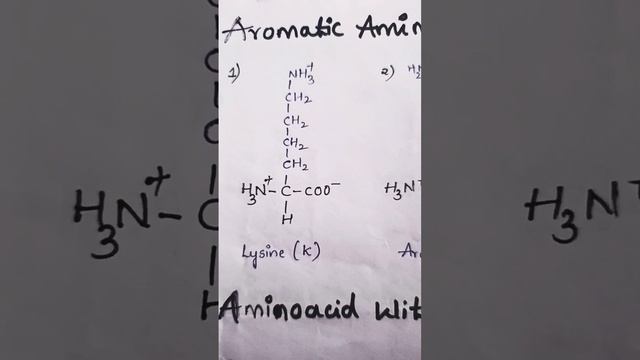 Aromatic Amin
1) NH3+ 2) H2
CH2
CH2
CH2
CH2
H3N+-C-COO- H3N+
H
Lysine (K) Ar
Aminoacid Wit
H3N+-C
H3N